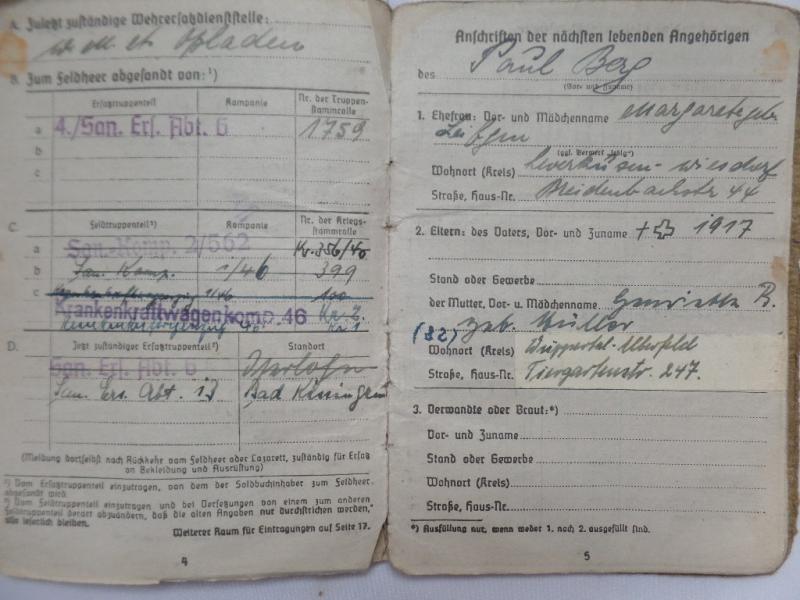 A. Zuletzt zuständige Wehrersatzdienststelle:
Opladen
B. Zum Feldheer abgesandt von:¹)
Ersatztruppenteil Kompanie Nr. der Truppenstammrolle
a 4./San. Ers. Abt. 6 1759
b
c
C. Feldtruppenteil²) Kompanie Nr. der Kriegsstammrolle
a San.-Komp. 2/562 Kr. 356/40
b San. Komp. 1/46 399
c 100
Krankenkraftwagenkomp. 46 Kr. 2.
Kr 1
D. Jetzt zuständiger Ersatztruppenteil²) Standort
San. Ers. Abt. 6 Iserlohn
San. Ers. Abt. 13 Bad Kissingen
(Meldung dortselbst nach Rückkehr vom Feldheer oder Lazarett, zuständig für Ersatz
an Bekleidung und Ausrüstung)
¹) Vom Ersatztruppenteil einzutragen, von dem der Soldbuchinhaber zum Feldheer
abgesandt wird.
²) Vom Feldtruppenteil einzutragen und bei Versetzungen von einem zum anderen
Feldtruppenteil derart abzuändern, daß die alten Angaben nur durchstrichen werden,
also leserlich bleiben.
Weiterer Raum für Eintragungen auf Seite 17.
4
Anschriften der nächsten lebenden Angehörigen
des Paul Berg
(Vor- und Zuname)
1. Ehefrau: Vor- und Mädchenname Margarete geb.
(ggf. Vermerk „ledig“)
Wohnort (Kreis) Leverkusen-Wiesdorf
Straße, Haus-Nr. Breidenbachstr 44
2. Eltern: des Vaters, Vor- und Zuname + 1917
Stand oder Gewerbe
der Mutter, Vor- u. Mädchenname Henriette B.
geb. Müller
(22)
Wohnort (Kreis) Wuppertal-Elberfeld
Straße, Haus-Nr. Tiergartenstr. 247.
3. Verwandte oder Braut:*)
Vor- und Zuname
Stand oder Gewerbe
Wohnort (Kreis)
Straße, Haus-Nr.
*) Ausfüllung nur, wenn weder 1. noch 2. ausgefüllt sind.
5